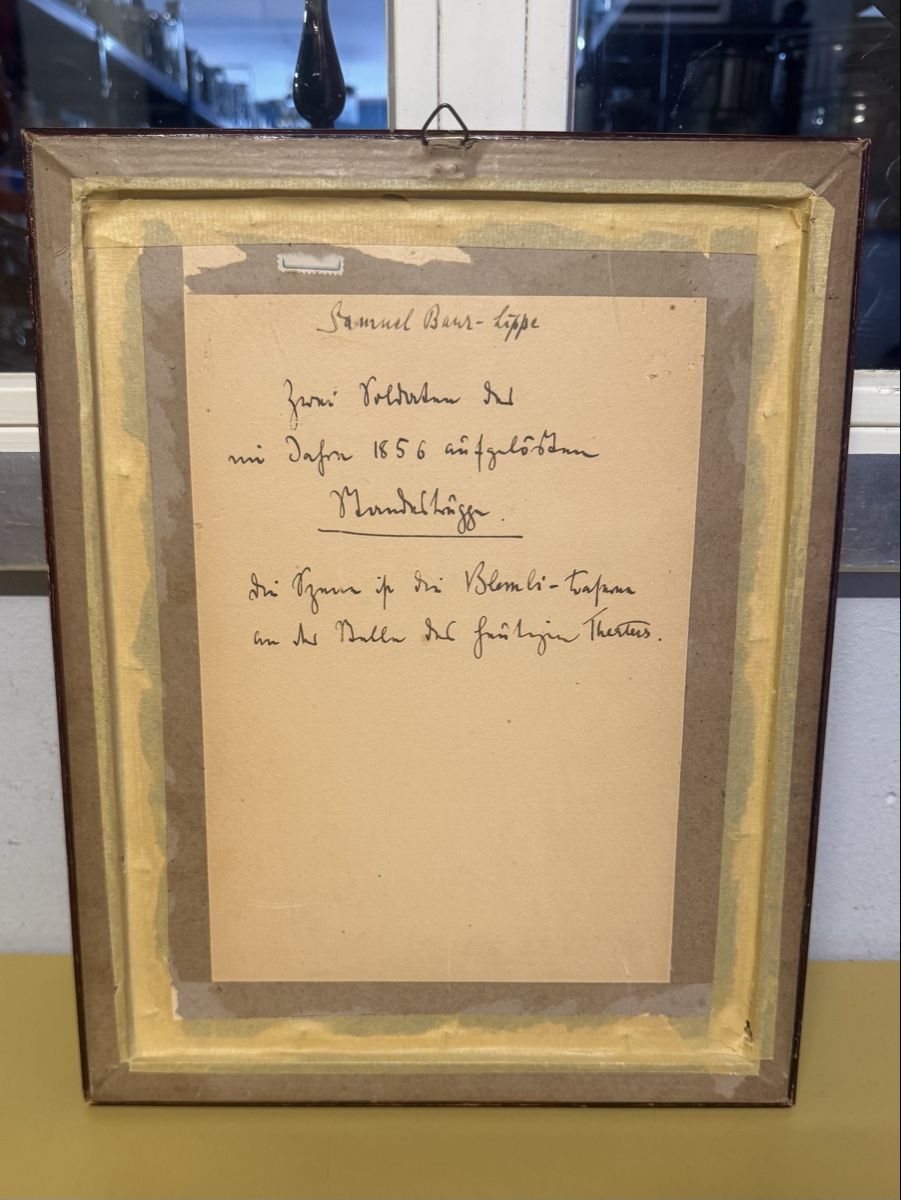 Samuel Baur-Lippe
Zwei Soldaten der
im Jahre 1856 aufgelösten
Standestruppe.
Die Szene ist die Blömli-Caserne
an der Stelle des heutigen Theaters.